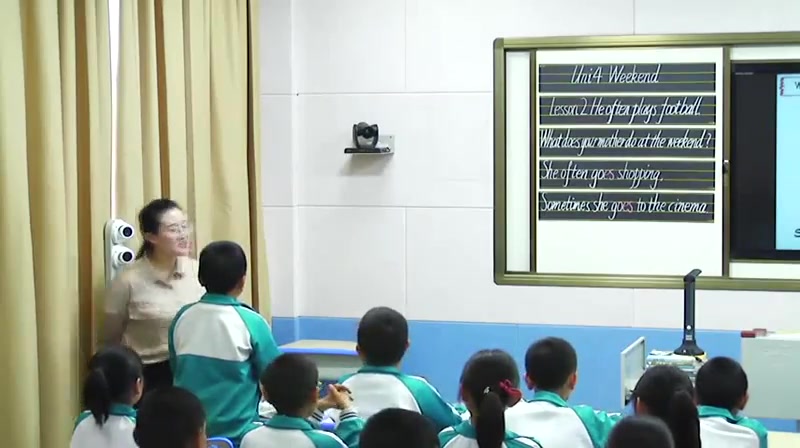 Uni4 Weekend
Lesson 2 He often plays football.
What does your mother do at the weekend?
She often goes shopping.
Sometimes she goes to the cinema